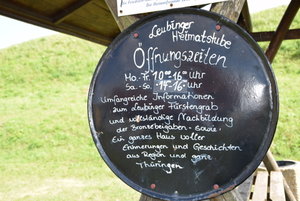 Leubinger
Heimatstube
Öffnungszeiten
Mo.-Fr. 10⁰⁰-16⁰⁰ Uhr
Sa.-So. 14-16 Uhr
Umfangreiche Informationen
zum Leubinger Fürstengrab
und vollständige Nachbildung
der Bronzebeigaben - sowie -
Ein ganzes Haus voller
Erinnerungen und Geschichten
aus Region und ganz
Thüringen